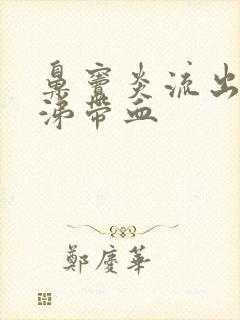 鼻竇炎流出
涕帶血
鄭慶華